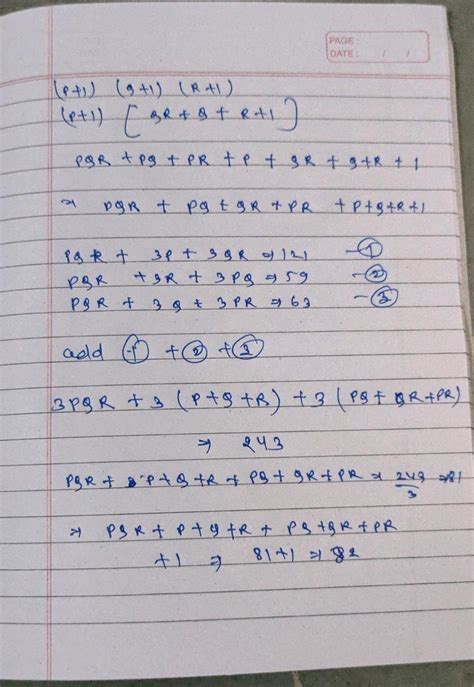 PAGE :
DATE : / /
(P+1) (Q+1) (R+1)
(P+1) [QR + Q + R+1]
PQR + PQ + PR + P + QR + Q+R + 1
⇒ PQR + PQ + QR + PR + P+Q+R+1
PQR + 3P + 3QR ⇒ 121 -①
PQR + 3R + 3PQ ⇒ 59 -②
PQR + 3Q + 3PR ⇒ 63 -③
add ① + ② + ③
3PQR + 3 (P+Q+R) + 3 (PQ + QR+PR)
⇒ 243
PQR + P+Q+R + PQ + QR + PR ⇒ 243/3 ⇒ 81
⇒ PQR + P+Q+R + PQ+QR+PR
+1 ⇒ 81+1 ⇒ 82